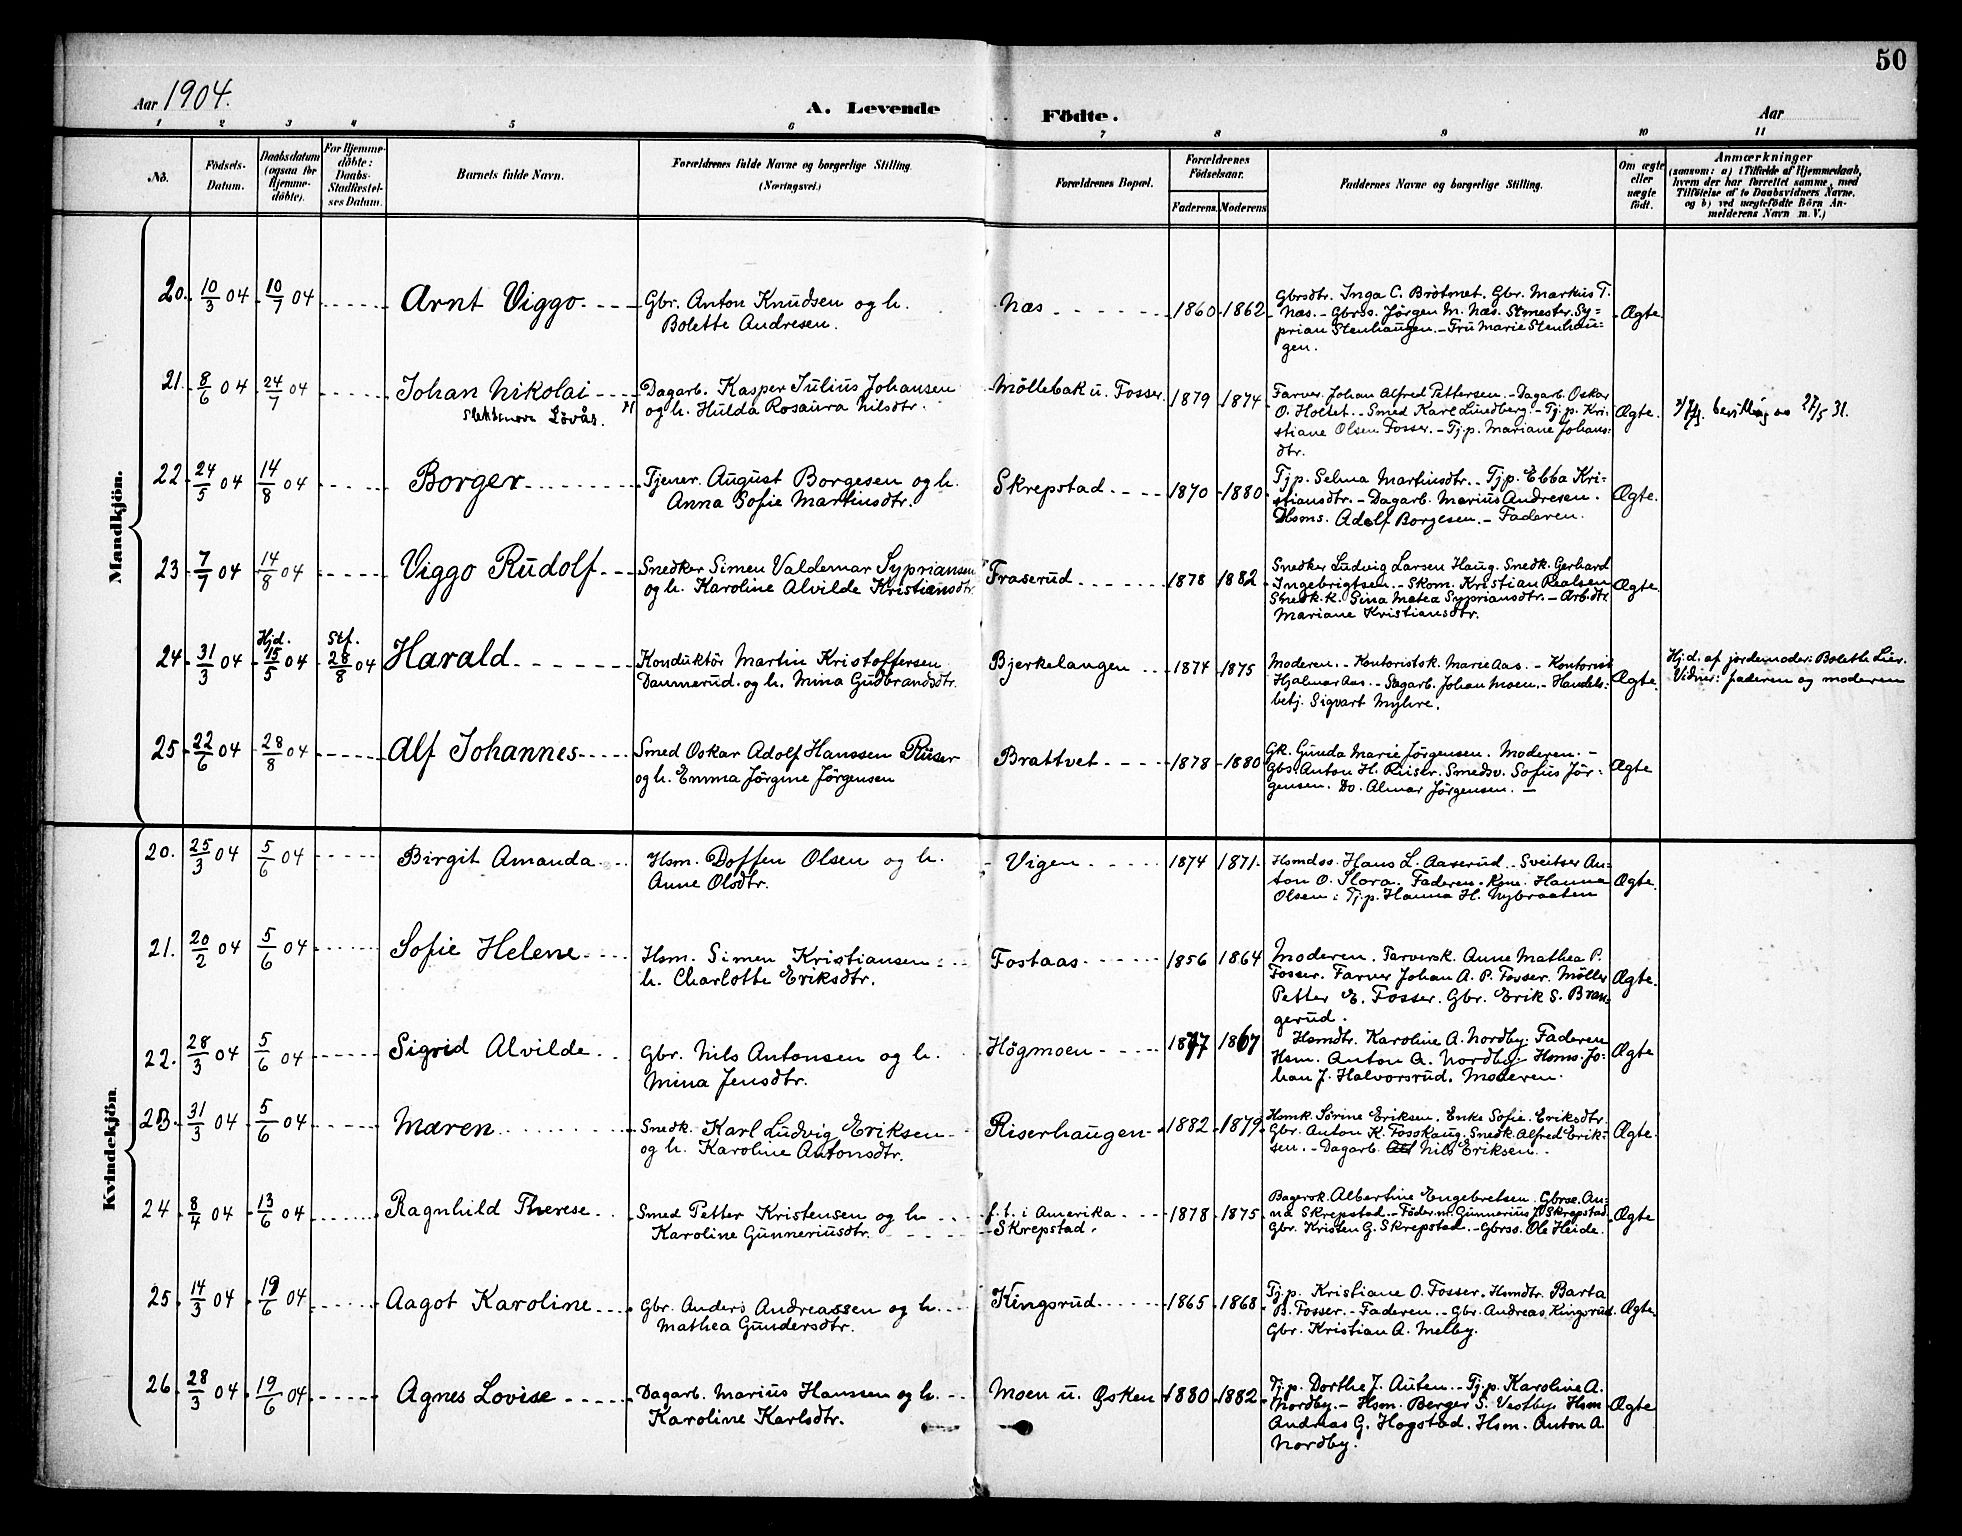 50
Aar 1904.
A. Levende Födte.
Aar
1 2 3 4 5 6 7 8 9 10 11
No.
Födsels-
Datum.
Daabsdatum
(ogsaa for
Hjemme-
döbte).
For Hjemme-
döbte:
Daabs-
Stadfæstel-
ses Datum.
Barnets fulde Navn.
Forældrenes fulde Navne og borgerlige Stilling.
(Næringsvei.)
Forældrenes Bopæl.
Forældrenes
Födselsaar.
Faderens. Moderens
Faddernes Navne og borgerlige Stilling.
Om ægte
eller
uægte
födt.
Anmærkninger
(saasom: a) i Tilfælde af Hjemmedaab,
hvem der har forrettet samme, med
Tilföielse af to Daabsvidners Navne,
og b) ved uægtefödte Börn An-
melderens Navn m. V.)
Mandkjön.
20. 10/3 04 10/7 04 Arnt Viggo.
Gbr. Anton Knudsen og h.
Bolette Andresen.
Næs 1860 1862
Gbrsdtr. Inga C. Brötmet. Gbr. Markus T.
Næs. - Gbrss. Jörgen M. Næs. Stmester. Sy-
prian Stenhaugen. - Fru Marie Stenhau-
gen.
Ægte.
21. 8/6 04 24/7 04 Johan Nikolai
Slektsnavn Lövås.
Dagarb. Kasper Julius Johansen
og h. Hulda Rosaura Nilsdtr.
Möllebak u. Fosser. 1879 1874
Farver. Johan Alfred Pettersen. - Dagarb. Oskar
O. Holtet. - Smed Karl Lundberg. - Tj.p. Kri-
stiane Olsen Fosser. - Tj.p. Mariane Johans-
dtr.
Ægte.
bevilling av 27/5 31.
22 24/5 04 14/8 04 Borger
Tjener. August Borgesen og h.
Anna Sofie Martinsdtr.
Skrepstad. 1870 1880
Tj.p. Selma Martinsdtr. - Tj.p. Ebba Kri-
stiansdtr. - Dagarb. Marius Andresen.
Hsms. Adolf Borgesen. - Faderen.
Ægte.
23 7/7 04 14/8 04 Viggo Rudolf
Snedker Simen Valdemar Sypriansen
og h. Karoline Alvilde Kristiansdtr.
Fraserud. 1878 1882
Snedker Ludvig Larsen Haug. Snedk. Gerhard
Ingebrigtsen. - Skom. Kristian Realsen
Snedk.k. Gina Matea Sypriansdtr. - Arb.dtr.
Mariane Kristiansdtr.
Ægte.
24 31/3 04 Hjd. 15/5 04 Stf. 28/8 04 Harald
Konduktör Martin Kristoffersen
Daumerud. og h. Mina Gudbrandsdtr.
Bjerkelangen 1874 1875
Moderen. - Kontoristk. Marie Aas. - Kontorist
Hjalmar Aas. - Sagarb. Johan Moen. - Handels-
betj. Sigvart Myhre.
Ægte.
Hj.d. af jordemoder: Bolette Lier.
Vidner: faderen og moderen
25 22/6 04 28/8 04 Alf Johannes
Smed Oskar Adolf Hanssen Riiser
og h. Emma Jörgine Jörgensen
Brattvet 1878 1880
Gk. Gunda Marie Jörgensen. Moderen. -
Gbs. Anton H. Riiser. Smedsv. Sofus Jör-
gensen. Do. Almar Jörgensen. -
Ægte
Kvindekjön
20. 25/3 04 5/6 04 Birgit Amanda
Hsm. Doffen Olsen og h.
Anne Olsdtr.
Vigen 1874 1871
Hsmdss. Hans L. Aaserud. - Sveitser An-
ton O. Flora. Faderen. Kone. Hanna
Olsen: Tj.p. Hanna H. Nybraaten
Ægte.
21. 20/2 04 5/6 04 Sofie Helene
Hsm. Simen Kristiansen
h. Charlotte Eriksdtr.
Fostaas 1856 1864
Moderen. Farversk. Anne Mathea P.
Fosser. Farver Johan A. P. Fosser. Möller
Petter E. Fosser. Gbr. Erik S. Bran-
gerud.
Ægte.
22. 28/3 04 5/6 04 Sigrid Alvilde
Gbr. Nils Antonsen og h.
Mina Jensdtr.
Högmoen 1877 1867
Hsmdtr. Karoline A. Nordby. Faderen
Hsm. Anton A. Nordby. - Hsms. Jo-
han J. Halvorsrud. Moderen.
Ægte
23. 31/3 04 5/6 04 Maren
Snedk. Karl Ludvig Eriksen
og h. Karoline Antonsdtr.
Riserhaugen 1882 1879
Hsmk. Sörine Eriksen. Enke Sofie Eriksdtr.
Gbr. Anton K. Fosskaug. Snedk. Alfred Erik-
sen. - Dagarb. Nils Eriksen.
Ægte.
24 8/4 04 13/6 04 Ragnhild Therese
Smed Petter Kristensen og h
Karoline Gunneriusdtr.
f. t. i Amerika
Skrepstad. 1878 1875
Bagersk. Albertine Engebretsen. Gbrse. An-
na Skrepstad. - Föder.m. Gunnerius J. Skrepstad.
Gbr. Kristen G. Skrepstad. - Gbrss. Ole Heide.
Ægte
25 14/3 04 19/6 04 Aagot Karoline
Gbr. Anders Andreassen og h.
Mathea Gundersdtr.
Kingsrud 1865 1868
Tj.p. Kristiane O. Fosser. Hsmdtr. Barta
B. Fosser. - Faderen. - Gbr. Andreas Kingsrud.
Gbr. Kristian A. Melby.
Ægte.
26 28/3 04 19/6 04 Agnes Lovise
Dagarb. Marius Hanssen og h.
Karoline Karlsdtr.
Moen u. Øsken 1880 1882
Tj.p. Dorthe J. Auten. - Tj.p. Karoline A.
Nordby. - Hsm. Berger S. Vestby. Hsm
Andreas G. Hogstad. Hsm. Anton A.
Nordby.
Ægte